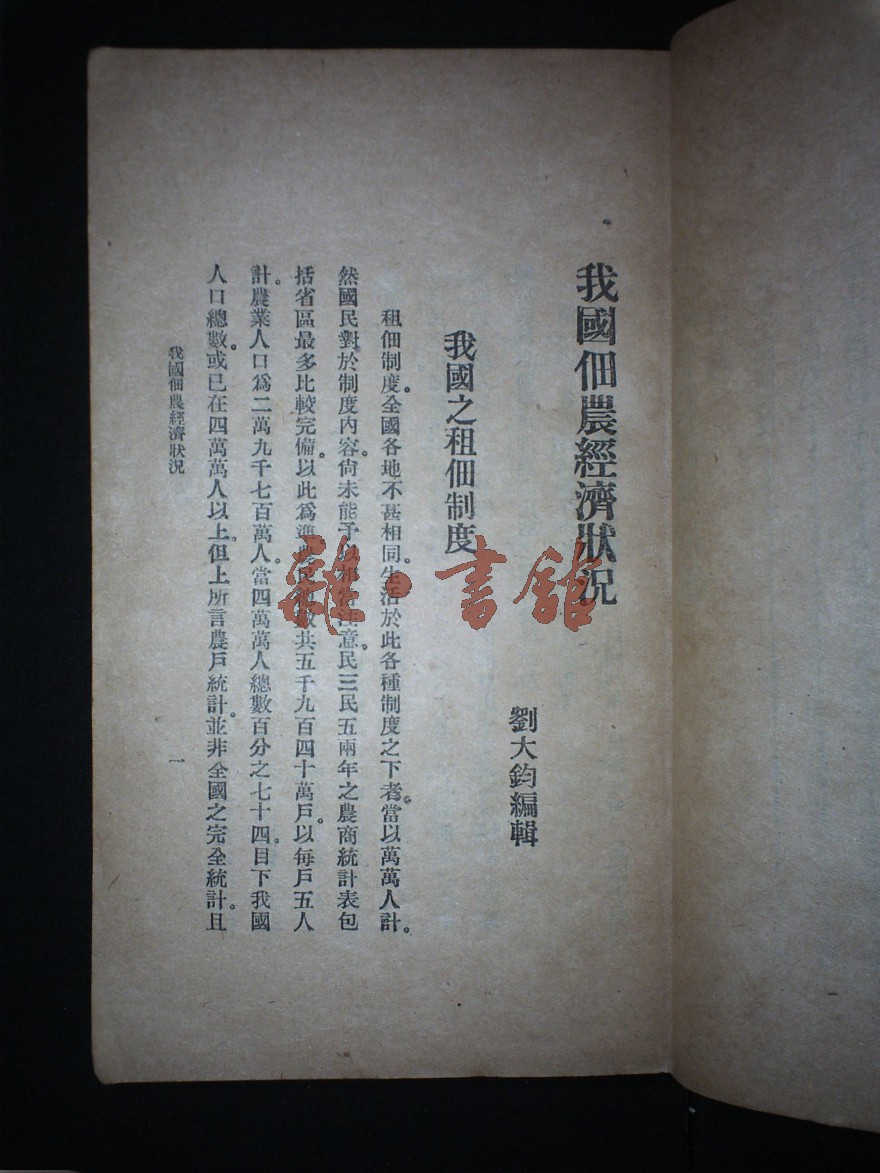 我國佃農經濟狀況
劉大鈞編輯
我國之租佃制度
租佃制度。全國各地不甚相同。生活於此各種制度之下者。當以萬萬人計。
然國民對於制度內容。尙未能予以相當注意。民三民五兩年之農商統計表包
括省區最多比較完備。以此爲準農民總數共五千九百四十萬戶。以每戶五人
計。農業人口爲二萬九千七百萬人。當四萬萬人總數百分之七十四。目下我國
人口總數。或已在四萬萬人以上。但上所言農戶統計。並非全國之完全統計。且
我國佃農經濟狀況
一
雜·書館